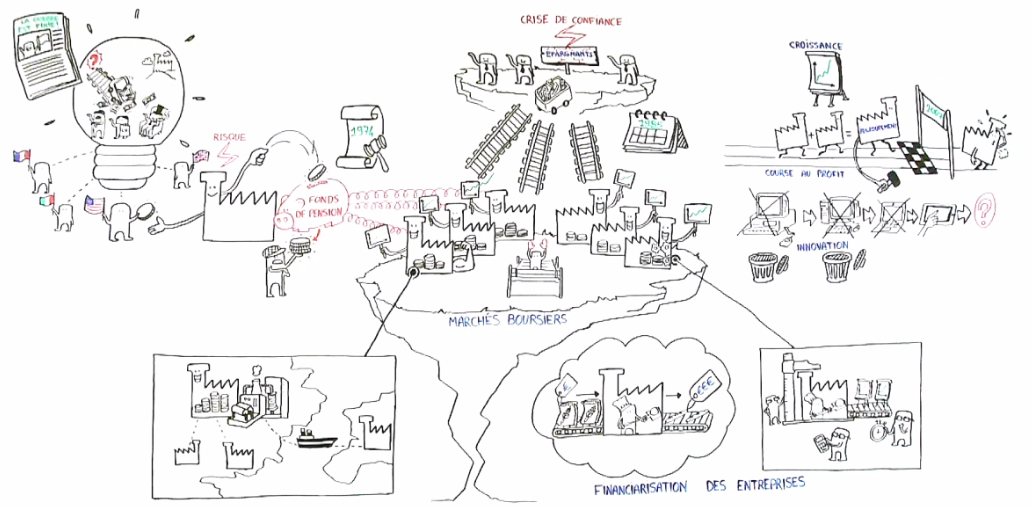 LA GUERRE
EST FINIE !
?
RISQUE
1974
FONDS
DE PENSION
CRISE DE CONFIANCE
EPARGNANTS
MARCHÉS BOURSIERS
CROISSANCE
+
=
COURSE AU PROFIT
INNOVATION
?
€
€€€
FINANCIARISATION DES ENTREPRISES